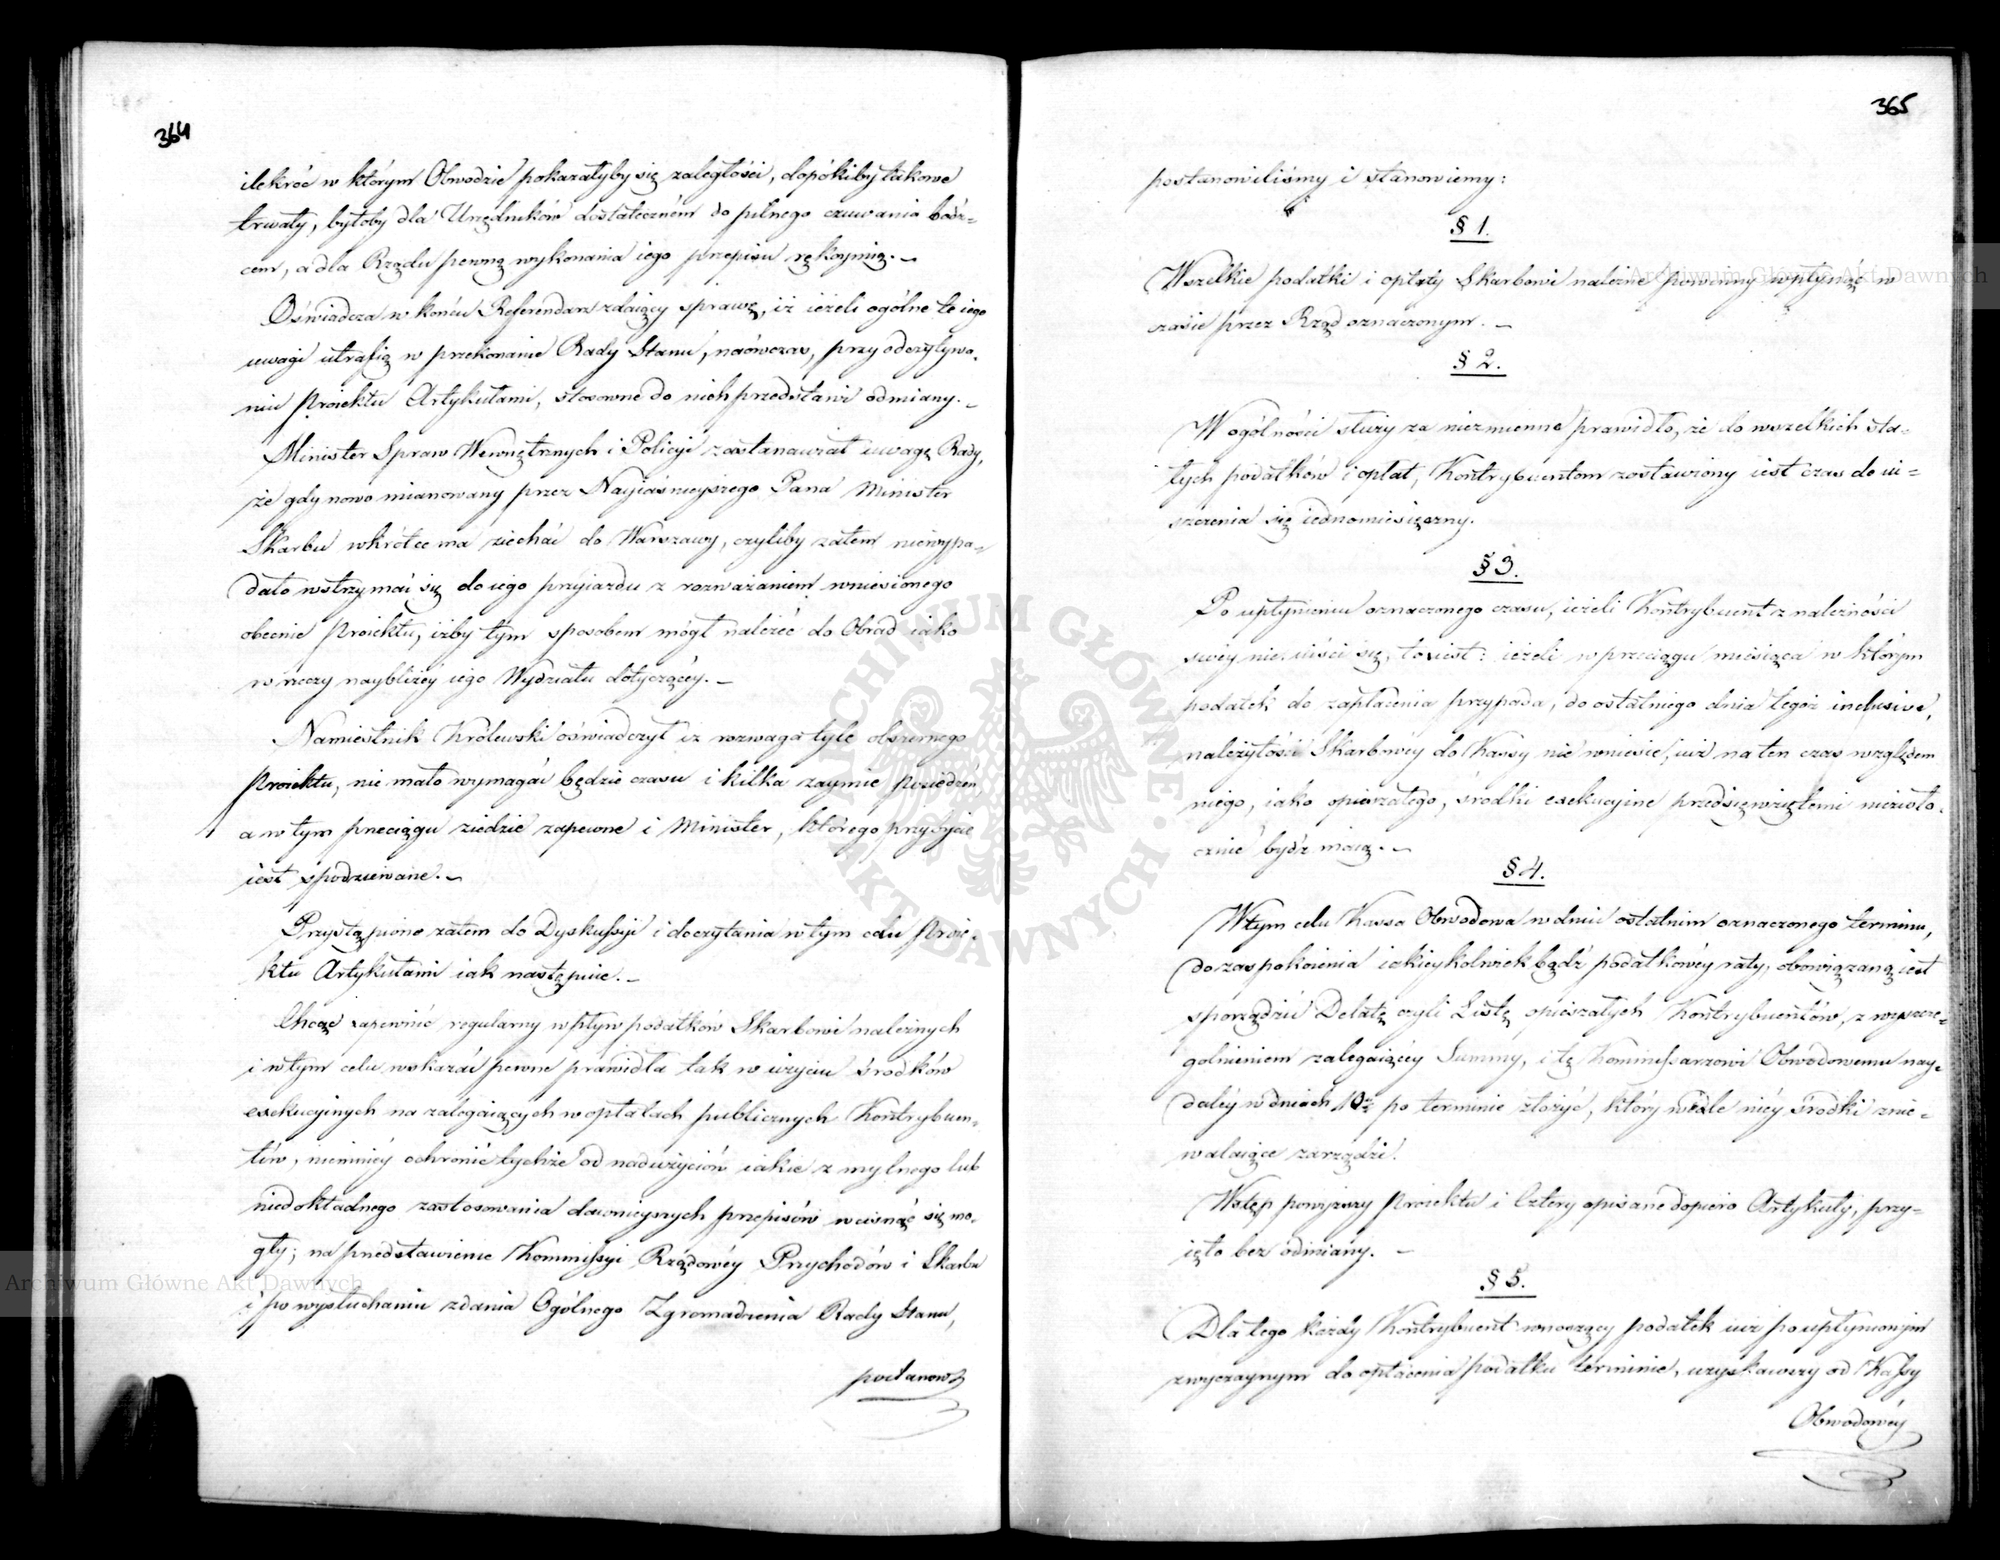 364
ilekroć w którym Obwodzie pokazałyby się zaległości, dopókiby takowe
trwały, byłoby dla Urzędników dostatecznem do pilnego czuwania bodź-
cem, a dla Rządu pewną wykonania iego przepisu rękoymią. -
Oświadcza w końcu Referendarz zdaiący sprawę, iż ieżeli ogólne te iego
uwagi utrafią w przekonanie Rady Stanu, naówczas, przy odczytywa-
niu Proiektu Artykułami, stosowne do nich przedstawi odmiany. -
Minister Spraw Wewnętrznych i Policyi zastanawiał uwagę Rady,
że gdy nowo mianowany przez Nayiaśnieyszego Pana Minister
Skarbu wkrótce ma ziechać do Warszawy, czyliby zatem niewypa-
dało wstrzymać się do iego przyiazdu z rozważaniem wniesionego
obecnie Proiektu, iżby tym sposobem mógł należeć do Obrad iako
w rzeczy naybliżey iego Wydziału dotyczącey. -
Namiestnik Królewski oświadczył iż rozwaga tyle obszernego
Proiektu, nie mało wymagać będzie czasu i kilka zaymie posiedzeń,
a w tym przeciągu ziedzie zapewne i Minister, którego przybycie
iest spodziewane. -
Przystąpiono zatem do Dyskussyi i doczytania w tym celu Proie-
ktu Artykułami iak następuie. -
Chcąc zapewnić regularny wpływ podatków Skarbowi należnych
i w tym celu wskazać pewne prawidła tak w użyciu środków
exekucyinych na zalegaiących w opłatach publicznych Kontrybuen-
tów, niemniéy ochronić tychże od nadużyciów iakie z mylnego lub
niedokładnego zastosowania dawnieyszych przepisów wcisnąć się mo-
gły; na przedstawienie Kommissyi Rządowéy Przychodów i Skarbu
i po wysłuchaniu zdania Ogólnego Zgromadzenia Rady Stanu,
postanow
365
postanowiliśmy i stanowiemy:
§ 1.
Wszelkie podatki i opłaty Skarbowi należne powinny wpłynąć w
czasie przez Rząd oznaczonym. -
§ 2.
W ogólności służy za niezmienne prawidło, że do wszelkich sta-
łych podatków i opłat, Kontrybuentom zostawiony iest czas do ui-
szczenia się iednomiesięczny.
§ 3.
Po upłynieniu oznaczonego czasu, ieżeli Kontrybuent z należności
swéy nie uiści się, to iest: ieżeli w przeciągu miesiąca w którym
podatek do zapłacenia przypada, do ostatniego dnia tegoż inclusive,
należytości Skarbowéy do Kassy nie wniesie, iuż na ten czas względem
niego, iako opieszałego, środki exekucyine przedsięwziętemi niezwło-
cznie bydź maią. -
§ 4.
W tym celu Kassa Obwodowa w dniu ostatnim oznaczonego terminu,
do zaspokoienia iakieykolwiek bądź podatkowéy raty, obowiązaną iest
sporządzić Delatę czyli Listę opieszałych Kontrybuentów, z wyszcze-
gólnieniem zalegaiącéy Summy, i tę Kommissarzowi Obwodowemu nay-
daléy w dniach 10. po terminie złożyć, który wedle niéy środki znie-
walaiące zarządzi.
Wstęp powyższy Proiektu i Cztery opisane dopiero Artykuły, przy-
ięto bez odmiany. -
§ 5.
Dla tego każdy Kontrybuent wnoszący podatek iuż po upłynionym
zwyczaynym do opłacenia podatku terminie, uzyskawszy od Kassy
Obwodowéy
Archiwum Główne Akt Dawnych
Archiwum Główne Akt Dawnych
ARCHIWUM GŁÓWNE · AKT DAWNYCH ·